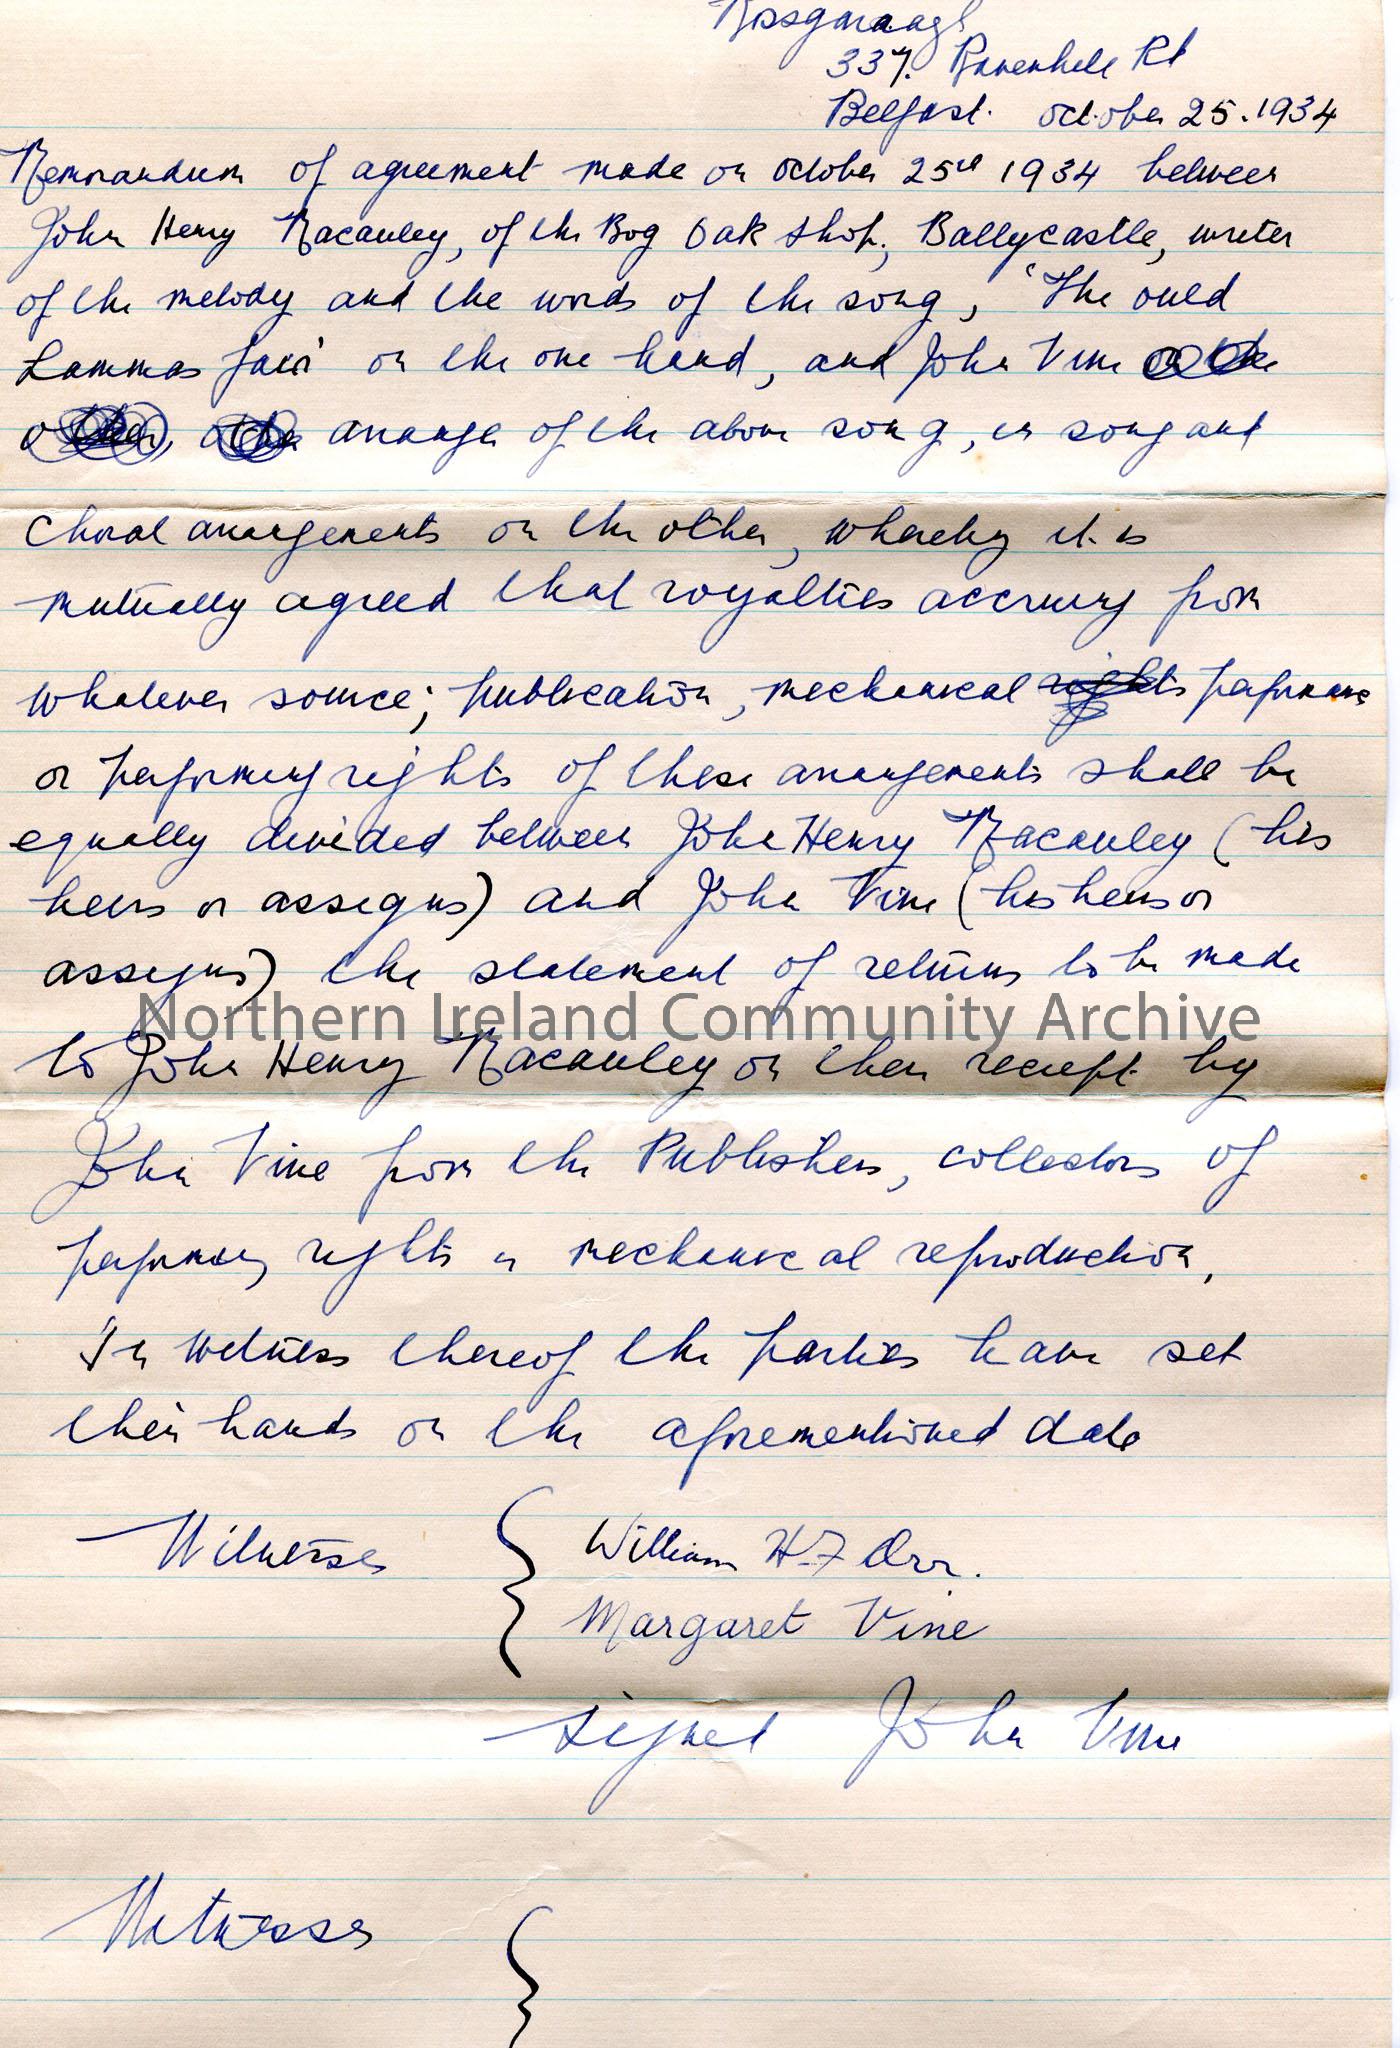 337. Ravenhill Rd
Belfast. October 25. 1934
Memorandum of agreement made on October 25th 1934 between
John Henry Macauley, of the Bog Oak Shop, Ballycastle, writer
of the melody and the words of the song, 'The ould
Lammas fair' on the one hand, and John Vine
arranger of the above song, in song and
choral arrangements on the other, whereby it is
mutually agreed that royalties accruing from
whatever source; publication, mechanical rights performance
or performing rights of these arrangements shall be
equally divided between John Henry Macauley (his
heirs or assigns) and John Vine (his heirs or
assigns) the statement of returns to be made
Northern Ireland Community Archive
to John Henry Macauley on their receipt by
John Vine from the Publishers, collectors of
performing rights or mechanical reproduction.
In witness thereof the parties have set
their hands on the aforementioned date
Witnesses { William H F Orr.
Margaret Vine
Signed John Vine
Witnesses {